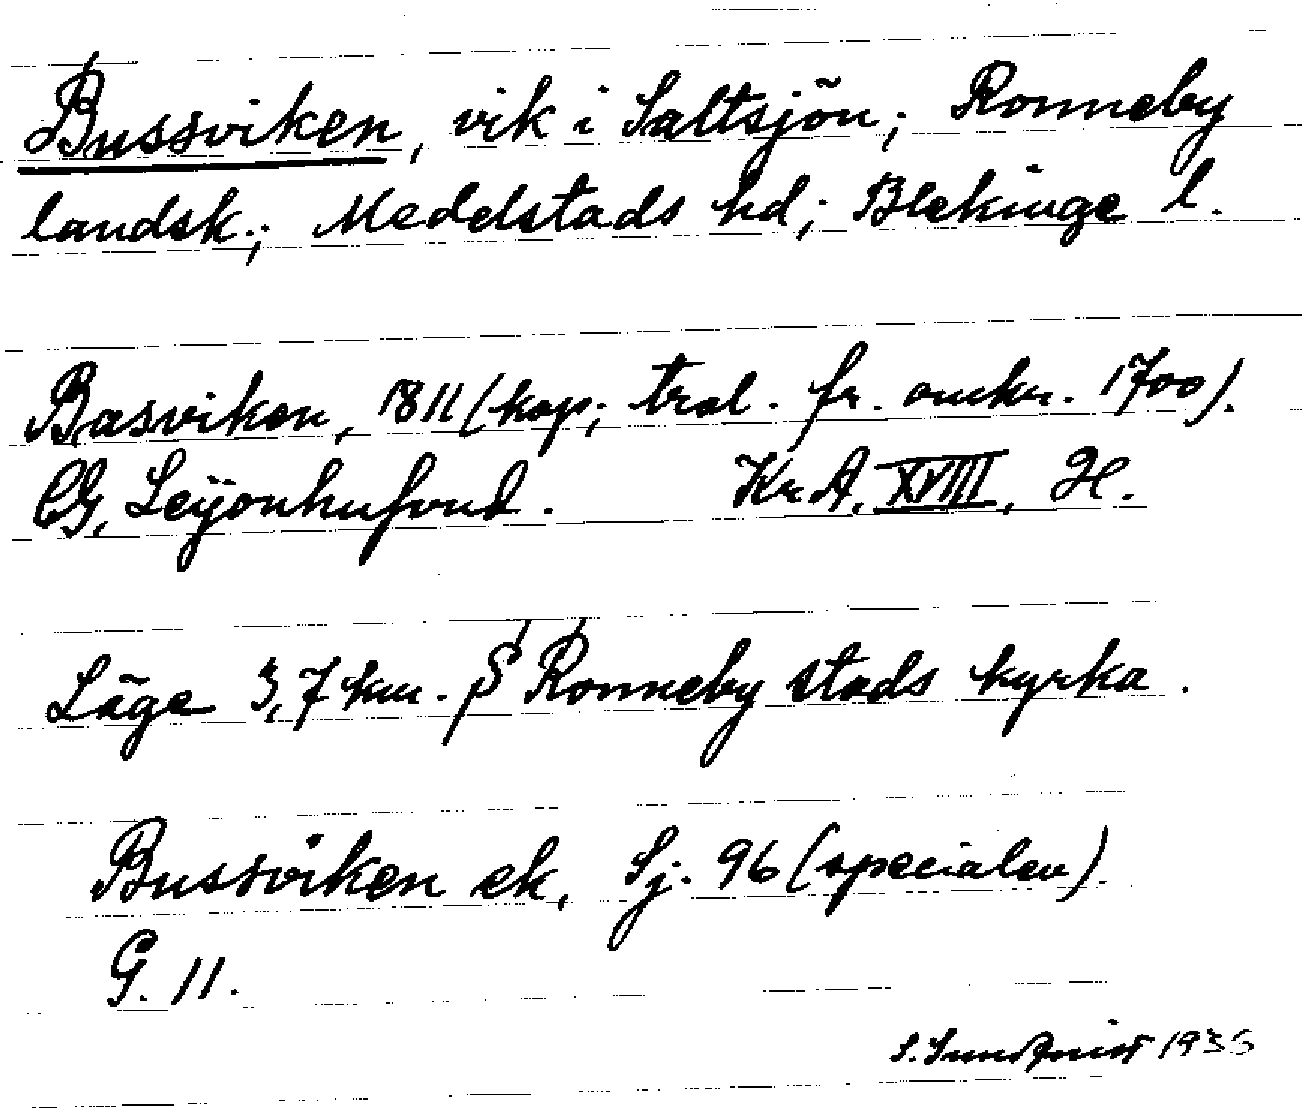 Bussviken, vik i Saltsjön; Ronneby
landsk.; Medelstads hd; Blekinge l.
Basviken, 1811 (kop; trol. fr. omkr. 1700).
CG. Leijonhufvud. Kr. A. XVIII, H.
Läge 3,7 km. S Ronneby stads kyrka.
Bussviken ek, Sj. 96 (specialen)
G. 11.
S. Sundqvist 1936